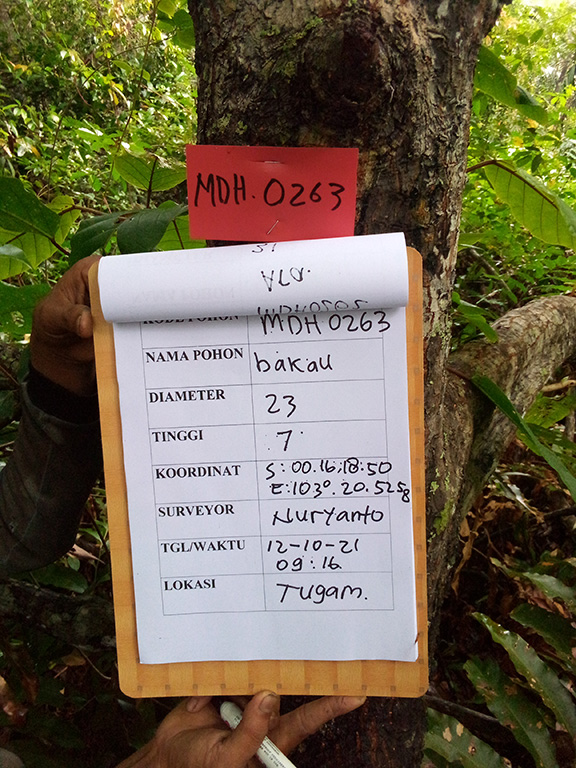 MDH. 0263
KODE POHON MDH 0263
NAMA POHON bakau
DIAMETER 23
TINGGI 7
KOORDINAT S: 00.16.18.50
E: 103°. 20. 5258
SURVEYOR Nuryanto
TGL/WAKTU 12-10-21
09:16
LOKASI Tugam.